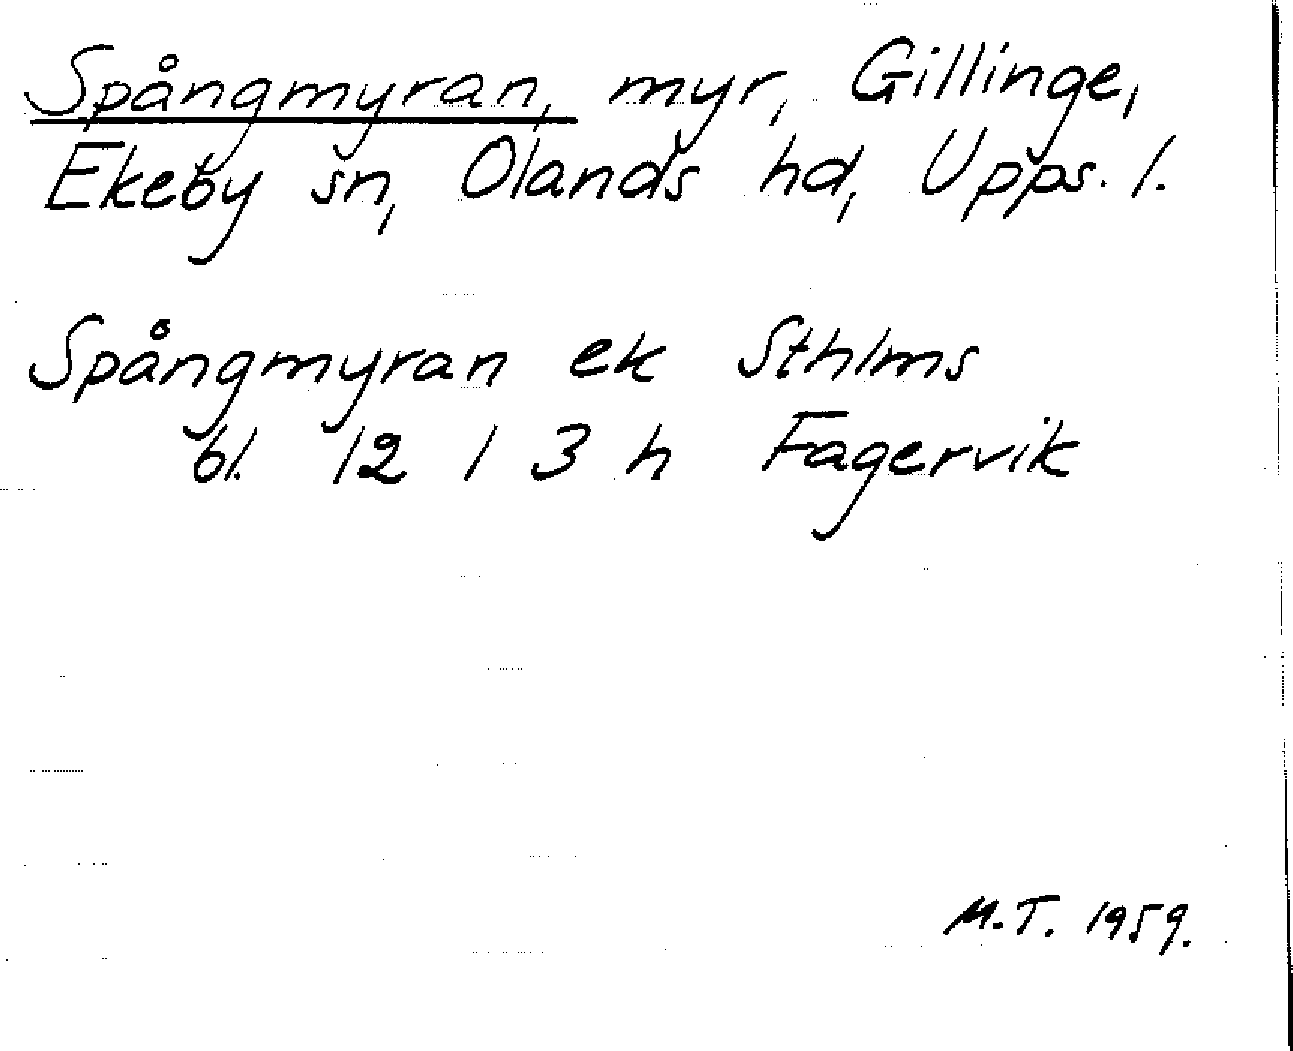 Spångmyran, myr, Gillinge,
Ekeby sn, Olands hd, Upps. l.
Spångmyran ek Sthlms
bl. 12 1 3 h Fagervik
M.T. 1959.